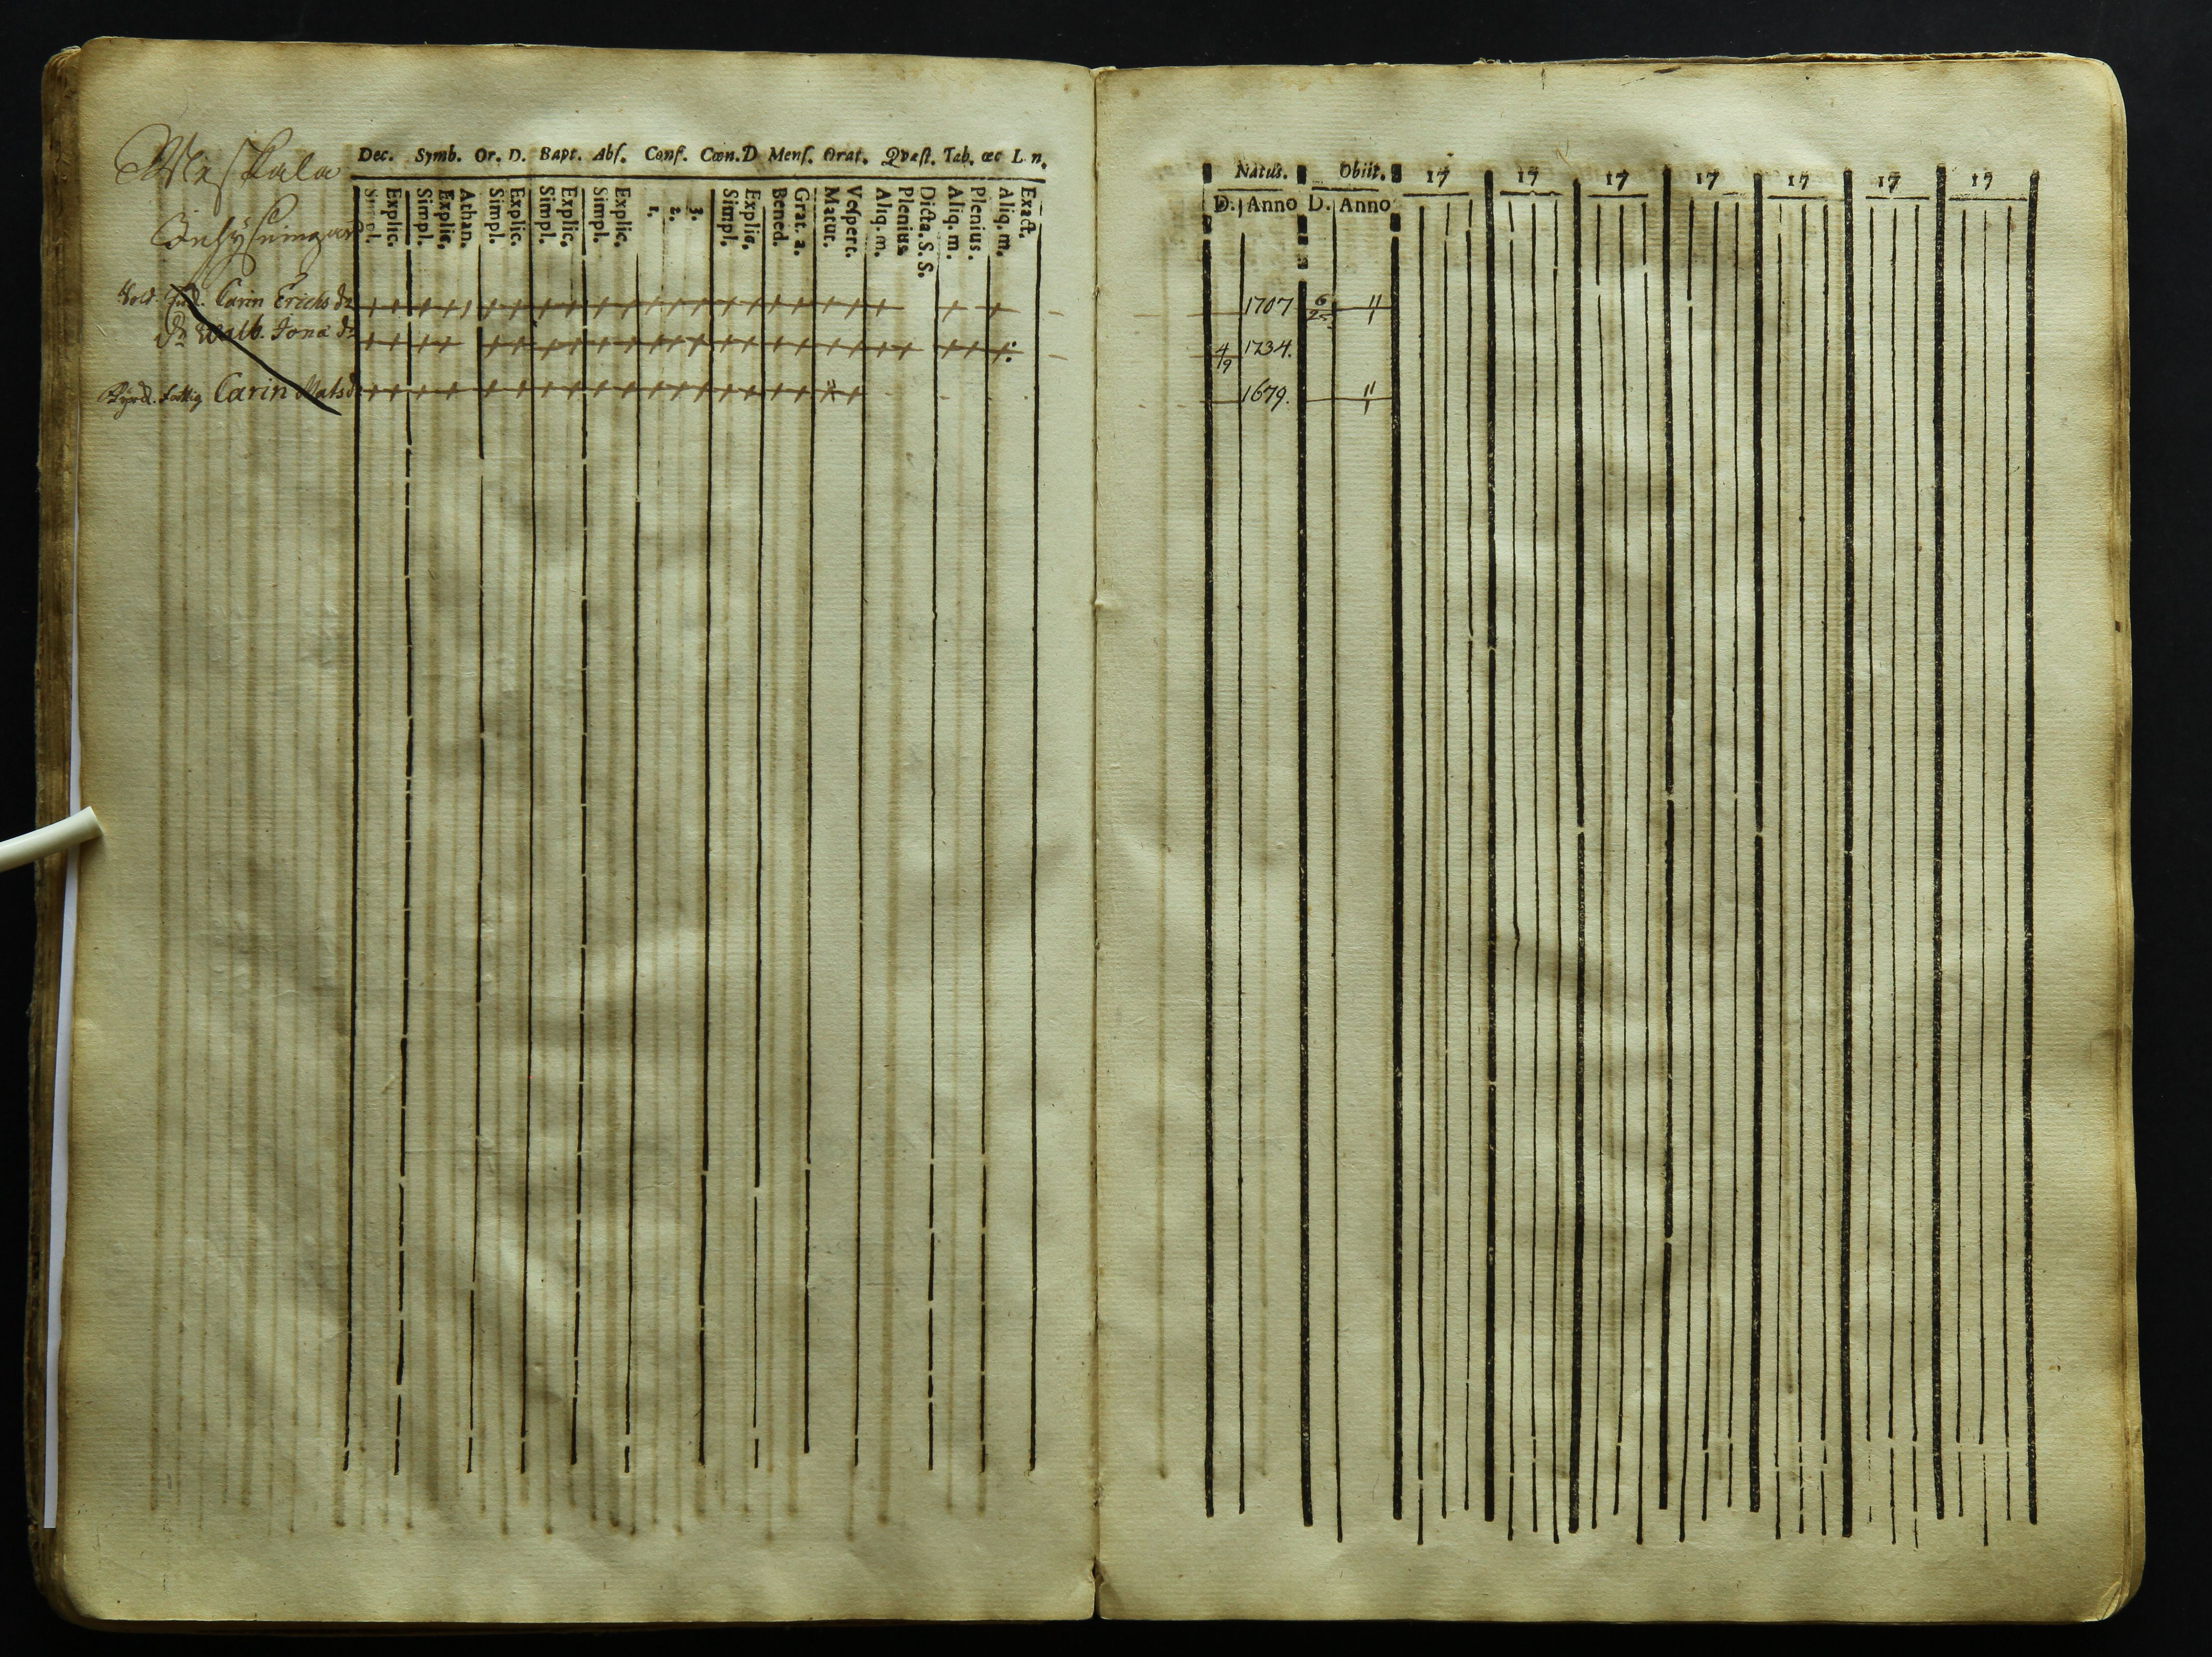 Dec. Symb. Or. D. Bapt. Abſ. Conf. Cœn. D Menſ. Orat. Qvæſt. Tab. œc L n.
Simpl. Explic. Simpl. Explic. Athan. Simpl. Explic. Simpl. Explic. Simpl. Explic. 1. 2. 3. Simpl. Explic. Bened. Grat. a. Matut. Veſpert. Aliq. m. Plenius Dicta. S. S. Aliq. m. Plenius. Aliq. m. Exact.
Inhÿsningar
Sold. Carin Erichs dr
dr Walb. Jonæ dr
fattig Carin Mats dr
Natus. Obiit. 17 17 17 17 17 17 17
D. Anno D. Anno
1707 6/25 "
4/9 1734.
1679. "